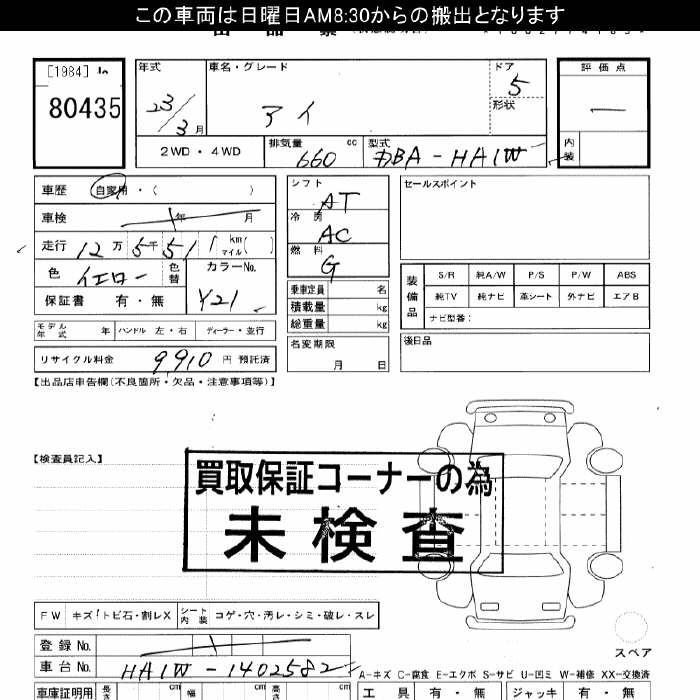 この車両は日曜日AM8:30からの搬出となります
[1984]
80435
年式
23/3月
車名・グレード
アイ
ドア
5
形状
評価点
―
内装
2WD・4WD
排気量
660
cc
型式
DBA-HA1W
車歴
自家用・(　　　)
車検
年
月
走行
12万5千51
km
マイル
(　)
色
イエロー
色替
カラーNo.
Y21
保証書 有・無
シフト
AT
冷房
AC
燃料
G
乗車定員 名
積載量 kg
総重量 kg
セールスポイント
装備品
S/R 純A/W P/S P/W ABS
純TV 純ナビ 革シート 外ナビ エアB
ナビ型番:
モデル年式 年 ハンドル 左・右 ディーラー・並行
リサイクル料金 9910 円 預託済
名変期限
月 日
後日品
【出品店申告欄(不良箇所・欠品・注意事項等)】
【検査員記入】
買取保証コーナーの為
未検査
FW キズ/トビ石・割レX シート内装 コゲ・穴・汚レ・シミ・破レ・スレ
スペア
登録No.
車台No. HA1W-1402582
A-キズ C-腐食 E-エクボ S-サビ U-凹ミ W-補修 XX-交換済
車庫証明用 長さ cm 幅 cm 高さ cm
工具 有・無 ジャッキ 有・無